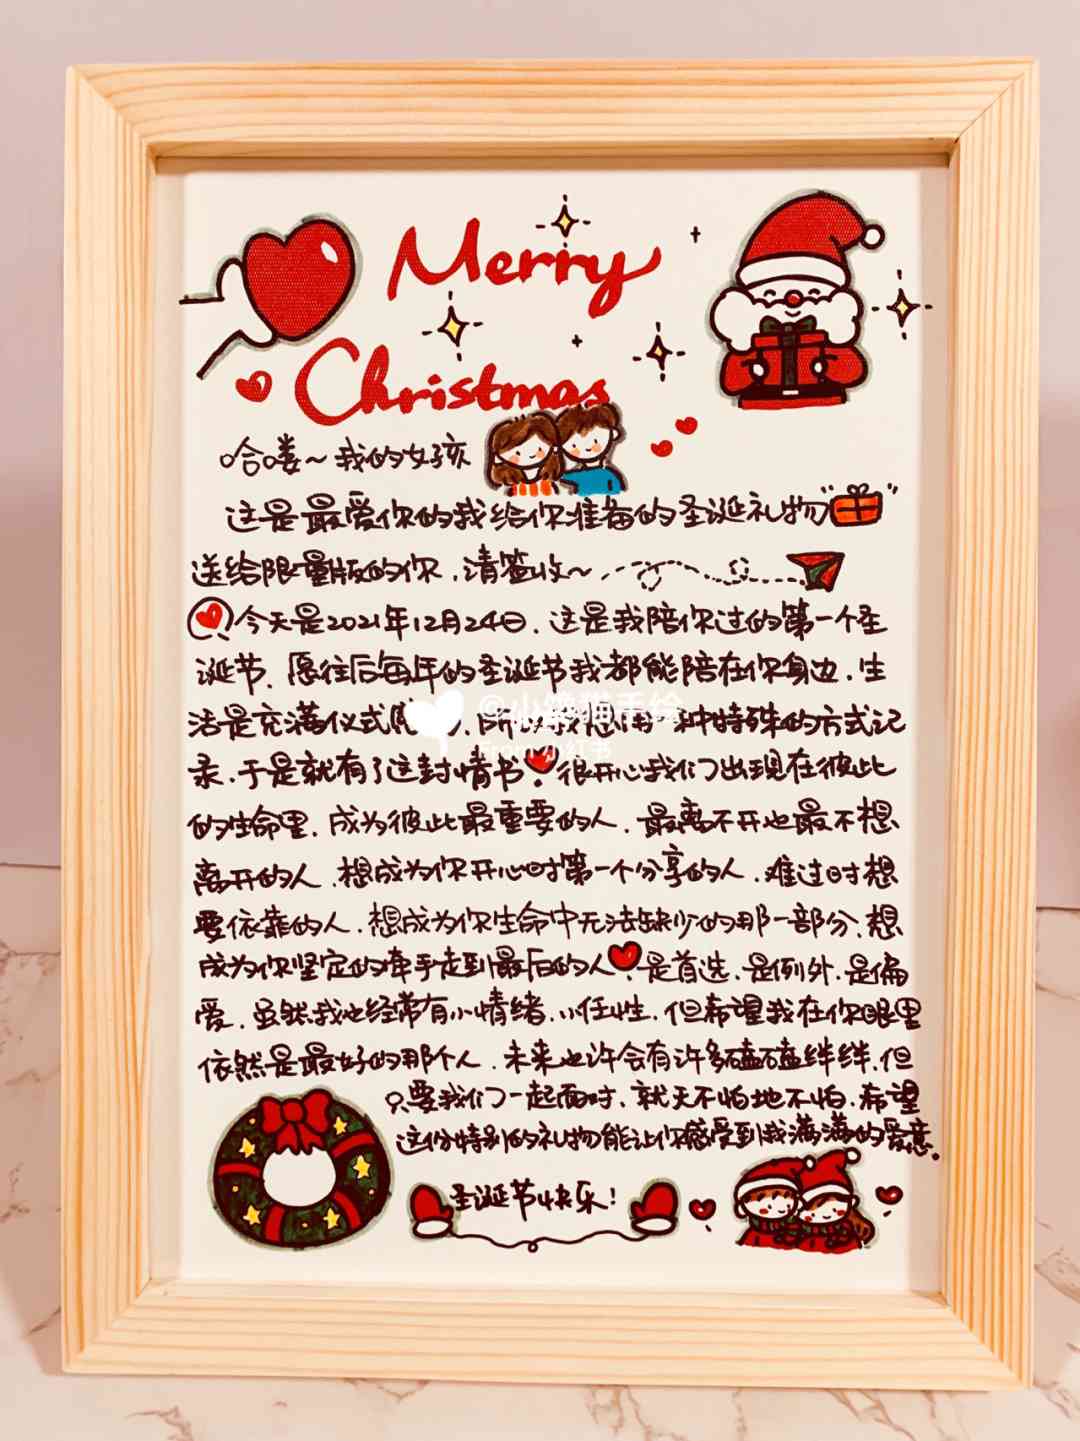 Merry
Christmas
哈喽～我的女孩
这是最爱你的我给你准备的圣诞礼物
送给限量版的你，请签收～
今天是2021年12月24日，这是我陪你过的第一个圣
诞节，愿往后每年的圣诞节我都能陪在你身边，生
活是充满仪式，所以我想用一种特殊的方式记
录，于是就有了这封情书。很开心我们出现在彼此
的生命里，成为彼此最重要的人，最离不开也最不想
离开的人，想成为你开心时第一个分享的人，难过时想
要依靠的人，想成为你生命中无法缺少的那一部分，想
成为你坚定的牵手走到最后的人，是首选，是例外，是偏
爱，虽然我也经常有小情绪，小任性，但希望我在你眼里
依然是最好的那个人，未来也许会有许多磕磕绊绊，但
只要我们一起面对，就天不怕地不怕，希望
这份特别的礼物能让你感受到我满满的爱意。
圣诞节快乐！
@小笼猫手绘
From 小红书